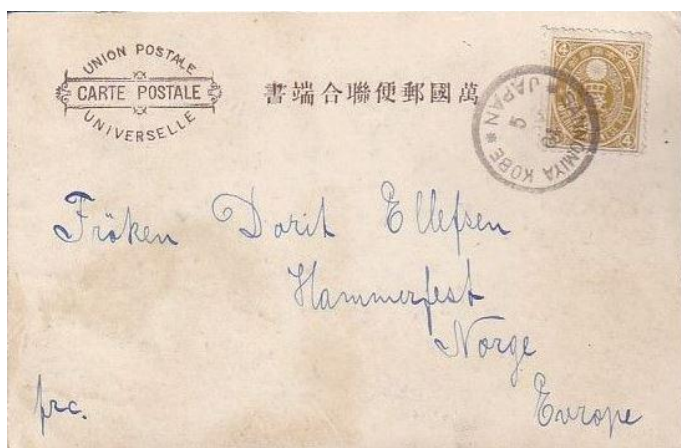 UNION POSTALE
CARTE POSTALE
UNIVERSELLE
書端合聯便郵國萬
4 5
4
SANNOMIYA KOBE
JAPAN
5
Fröken Dorit Ellefsen
Hammerfest
Norge
Europe
prc.